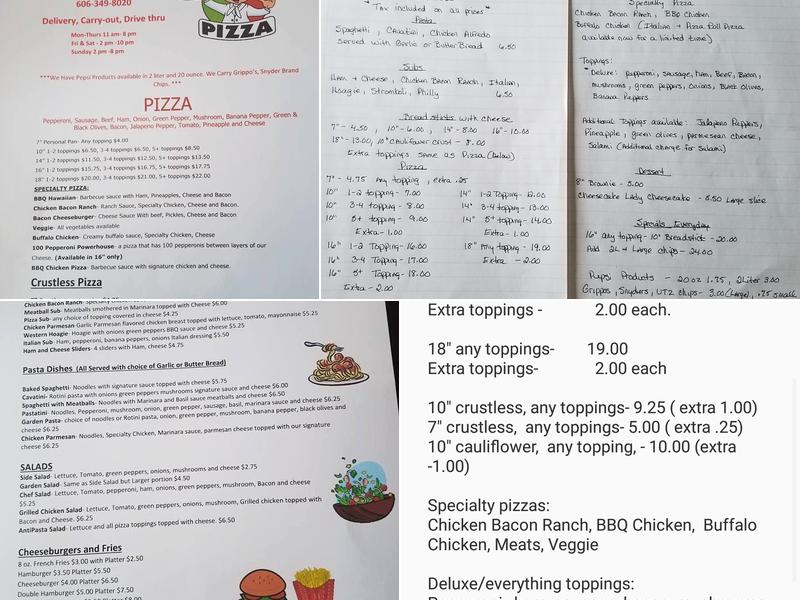 606-349-8020
Delivery, Carry-out, Drive thru
Mon-Thurs 11 am- 8 pm
Fri & Sat - 2 pm -10 pm
Sunday 2 pm -8 pm
PIZZA
***We Have Pepsi Products available in 2 liter and 20 ounce. We Carry Grippo's, Snyder Brand
Chips. ***
PIZZA
Pepperoni, Sausage, Beef, Ham, Onion, Green Pepper, Mushroom, Banana Pepper, Green &
Black Olives, Bacon, Jalapeno Pepper, Tomato, Pineapple and Cheese
7" Personal Pan- Any topping $4.00
10" 1-2 toppings $6.50, 3-4 toppings $6.50, 5+ toppings $8.50
14" 1-2 toppings $11.50, 3-4 toppings $12.50, 5+ toppings $13.50
16" 1-2 toppings $15.75, 3-4 toppings $16.75, 5+ toppings $17.75
18" 1-2 toppings $20.00, 3-4 toppings $21.00, 5+ toppings $22.00
SPECIALTY PIZZA:
BBQ Hawaiian- Barbecue sauce with Ham, Pineapples, Cheese and Bacon
Chicken Bacon Ranch- Ranch Sauce, Specialty Chicken, Cheese and Bacon.
Bacon Cheeseburger- Cheese Sauce With beef, Pickles, Cheese and Bacon
Veggie- All vegetables available
Buffalo Chicken- Creamy buffalo sauce, Specialty Chicken and Cheese
100 Pepperoni Powerhouse- a pizza that has 100 pepperonis between layers of our
Cheese. (Available in 16" only)
BBQ Chicken Pizza- Barbecue sauce with signature chicken and cheese.
Crustless Pizza
"Tax included on all prices"
Pasta
Spaghetti, Cavatini, Chicken Alfredo
Served with Garlic or Butter Bread 6.50
Subs
Ham + Cheese, Chicken Bacon Ranch, Italian,
Hoagie, Stromboli, Philly 6.50
Bread sticks with cheese
7" - 4.50, 10" - 6.00, 14" - 8.00 16" - 10.00
18" - 13.00, 10" Cauliflower crust - 8.00
Extra toppings same as Pizza (below)
Pizza
7" - 4.75 Any topping, extra .25
10" 1-2 topping - 7.00 14" 1-2 Topping - 12.00
10" 3-4 topping - 8.00 14" 3-4 topping - 13.00
10" 5+ topping - 9.00 14" 5+ topping - 14.00
Extra - 1.00 Extra - 1.00
16" 1-2 Topping - 16.00 18" Any topping - 19.00
16" 3-4 Topping - 17.00 Extra - 2.00
16" 5+ Topping - 18.00
Extra - 2.00
Specialty Pizza
Chicken Bacon Ranch, BBQ Chicken
Buffalo Chicken (Italian + Pizza Roll Pizza
available now for a limited time)
Toppings:
*Deluxe: pepperoni, sausage, Ham, Beef, Bacon,
mushrooms, green peppers, Onions, Black Olives,
Banana Peppers
Additional Toppings available: Jalapeno Peppers,
Pineapple, green olives, parmesean cheese,
Salami (Additional charge for Salami)
Dessert
8" Brownie - 5.00
Cheesecake Lady Cheesecake - 6.50 Large slice
Specials Everyday
16" any topping - 10" Breadstick - 20.00
Add 2L + Large chips - 24.00
Pepsi Products - 20oz 1.75, 2Liter 3.00
Grippos, Snyders, UTZ chips - 3.00 (Large), .75 small
Chicken Bacon Ranch-
Meatball Sub- Meatballs smothered in Marinara topped with Cheese $6.00
Pizza Sub- any choice of topping covered in cheese $4.25
Chicken Parmesan- Garlic Parmesan flavored chicken breast topped with lettuce, tomato, mayonnaise $5.25
Western Hoagie- Hoagie with onions green peppers BBQ sauce and cheese $5.25
Italian Sub- Ham, pepperoni, banana peppers, onions Italian dressing $5.50
Ham and Cheese Sliders- 4 sliders with Ham, cheese $4.75
Pasta Dishes (All Served with choice of Garlic or Butter Bread)
Baked Spaghetti- Noodles with signature sauce topped with cheese $5.75
Cavatini- Rotini pasta with onions green peppers mushrooms signature sauce and cheese $6.00
Spaghetti with Meatballs- Noodles with Marinara and Basil sauce meatballs cheese $6.50
Pastatini- Noodles, Pepperoni, mushroom, onion, green pepper, sausage, basil, marinara sauce and cheese $6.25
Garden Pasta- choice of noodles or Rotini pasta, onion, green pepper, mushroom, banana pepper, black olives and
cheese $6.25
Chicken Parmesan- Noodles, Specialty Chicken, Marinara sauce, parmesan cheese topped with our signature
cheese $6.25
SALADS
Side Salad- Lettuce, Tomato, green peppers, onions, mushrooms and cheese $2.75
Garden Salad- Same as Side Salad but Larger portion $4.50
Chef Salad- Lettuce, Tomato, pepperoni, ham, onions, green peppers, mushroom, Bacon and cheese
$5.25
Grilled Chicken Salad- Lettuce, Tomato, green peppers, onions, mushroom, Grilled chicken topped with
Bacon and Cheese. $6.25
AntiPasta Salad- Lettuce and all pizza toppings topped with cheese. $6.50
Cheeseburgers and Fries
8 oz. French Fries $3.00 with Platter $2.50
Hamburger $3.50 Platter $5.50
Cheeseburger $4.00 Platter $6.50
Double Hamburger $5.00 Platter $7.50
Extra toppings - 2.00 each.
18" any toppings- 19.00
Extra toppings- 2.00 each
10" crustless, any toppings- 9.25 ( extra 1.00)
7" crustless, any toppings- 5.00 ( extra .25)
10" cauliflower, any topping, - 10.00 (extra
-1.00)
Specialty pizzas:
Chicken Bacon Ranch, BBQ Chicken, Buffalo
Chicken, Meats, Veggie
Deluxe/everything toppings: